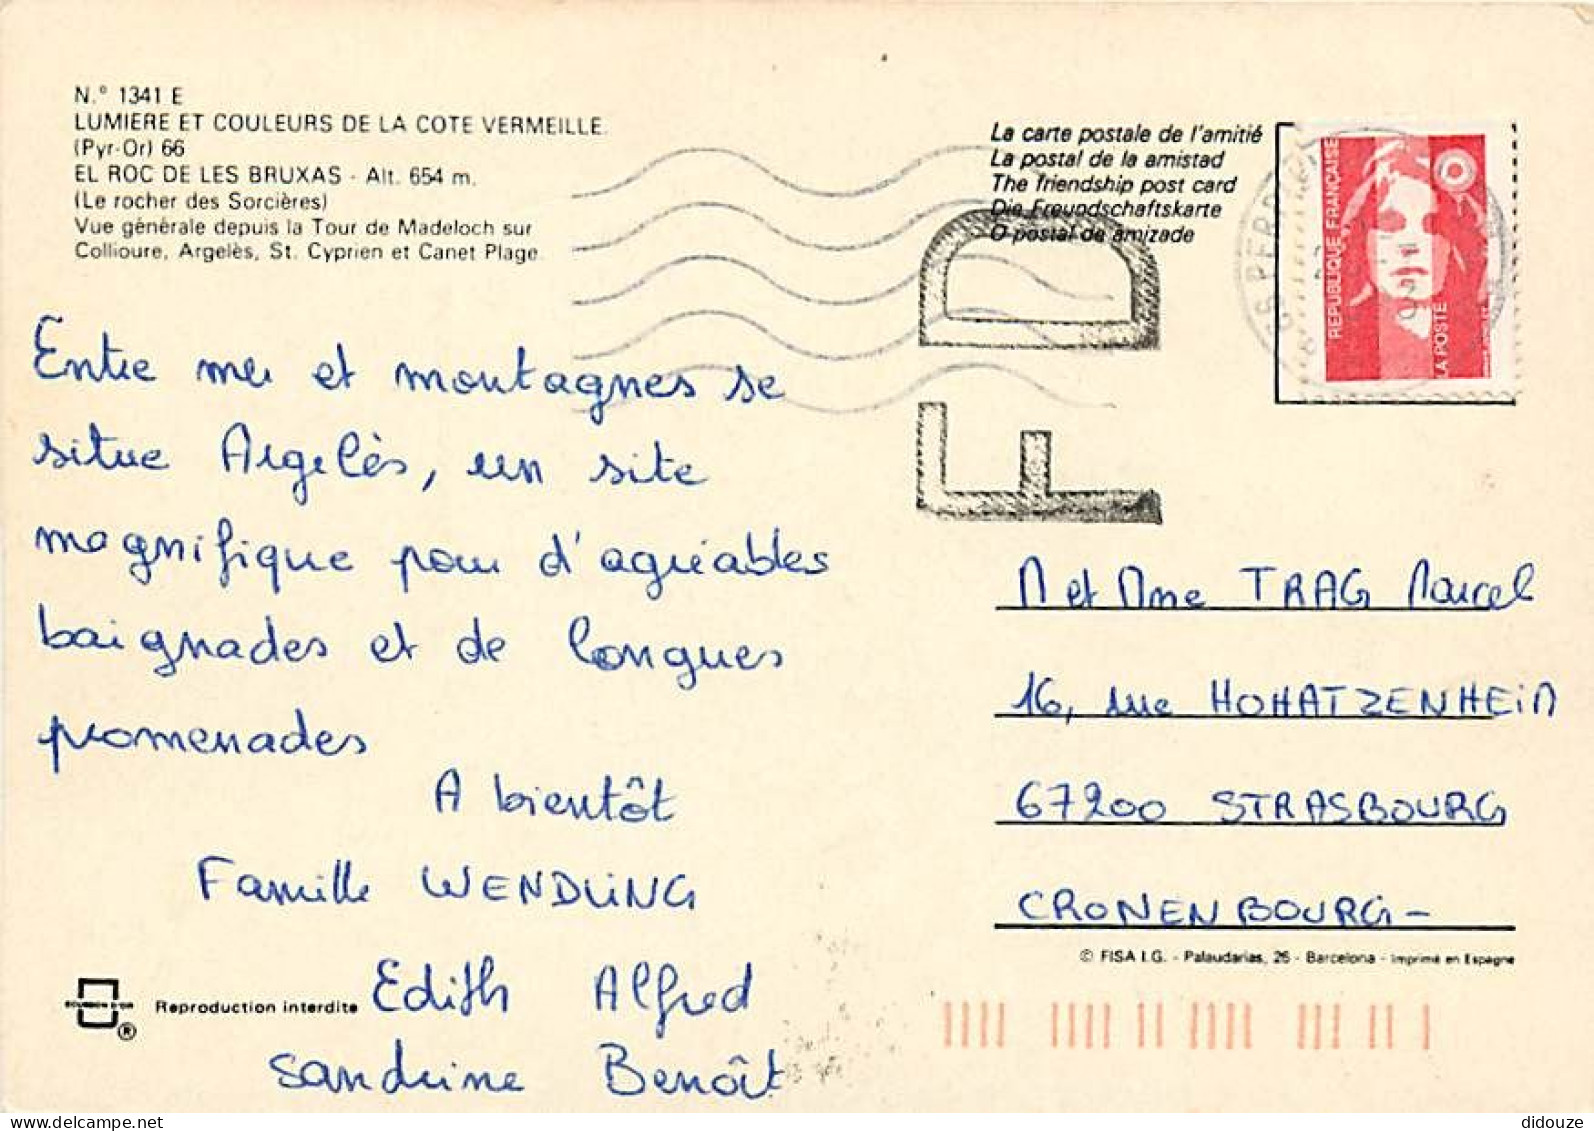 N.° 1341 E
LUMIERE ET COULEURS DE LA COTE VERMEILLE.
(Pyr-Or) 66
EL ROC DE LES BRUXAS - Alt. 654 m.
(Le rocher des Sorcières)
Vue générale depuis la Tour de Madeloch sur
Collioure, Argelès, St. Cyprien et Canet Plage.
La carte postale de l'amitié
La postal de la amistad
The friendship post card
Die Freundschaftskarte
O postal de amizade
REPUBLIQUE FRANÇAISE
LA POSTE
FD
Entre mer et montagnes se
situe Argelès, un site
magnifique pour d'agréables
baignades et de longues
promenades
A bientôt
Famille WENDLING
Edith Alfred
Sandrine Benoît
M et Mme TRAG Marcel
16, rue HOHATZENHEIM
67200 STRASBOURG
CRONENBOURG-
© FISA I.G. - Palaudarias, 26 - Barcelona - Imprimé en Espagne
ESCUDO D'OR
®
Reproduction interdite
didouze